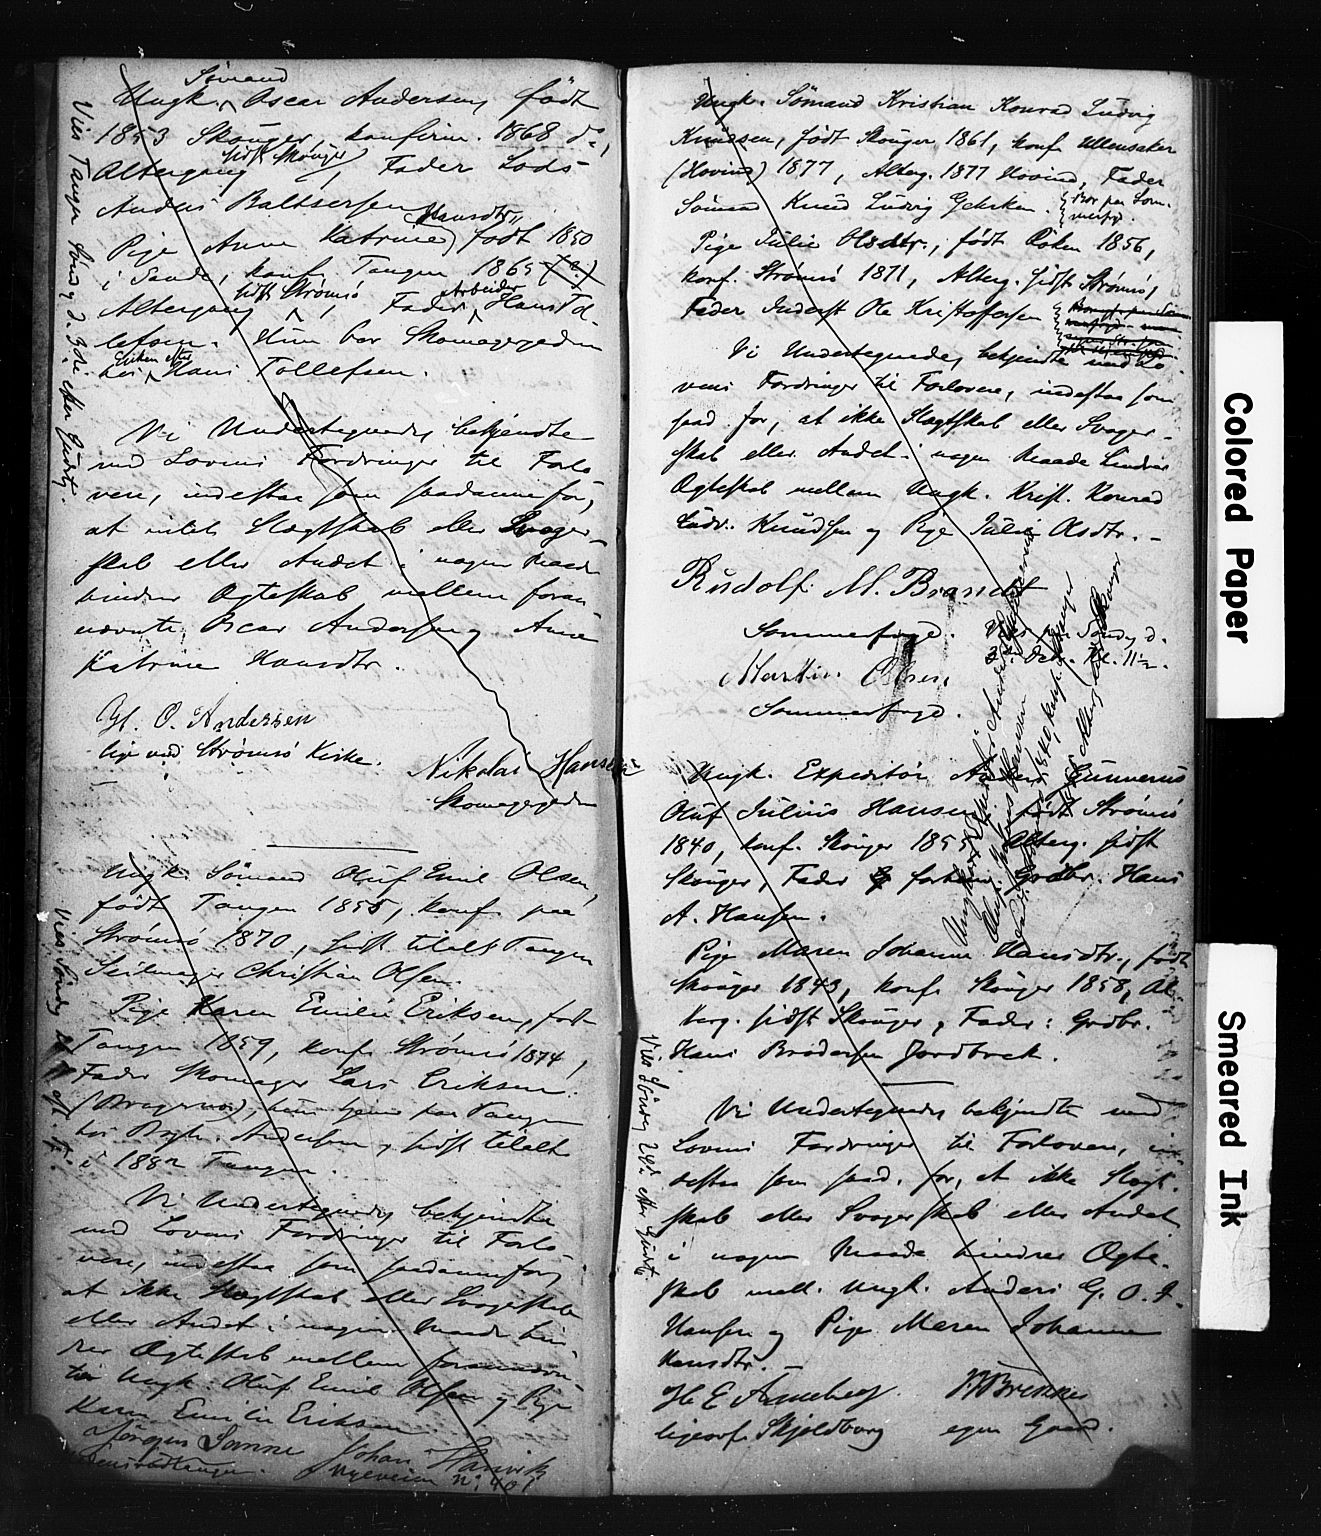 Sømand
Ungk. Oscar Andersen, født
1853 Skouger, konfirm. 1868 do,
sidst Skouger
Altergang, Fader Lods
Anders Baltsersen
Hansdtr.
Pige Anne Katrine, født 1850
i Sande, konf. Tangen 1865 (?)
sidst Strømsø Arbeider
Altergang, Fader Hans Tol-
lefsen. Hun bor Skomagergaden
Enken efter
hos Hans Tollefsen.
Vi Undertegnede, bekjendte
med Lovens Fordringer til Forlo-
vere, indestaa som saadanne for,
at intet Slægtskab eller Svoger-
skab eller Andet i nogen Maade
hindrer Ægteskab mellem foran-
nævnte Oscar Andersen og Anne
Katrine Hansdtr.
O. Andersen
lige ved Strømsø Kirke.
Nikolai Hansen
Skomagergaden
Ungk. Sømand Oluf Emil Olsen,
født Tangen 1855, konf. paa
Strømsø 1870, sidst tilalt Tangen
Seilmager Christian Olsen.
Pige Karen Emilie Eriksen, født
Tangen 1859, konf. Strømsø 1874,
Fader Skomager Lars Eriksen
(Bragernes), hun tjener paa Tangen
hos Andersen, sidst tilalt
i 1882 Tangen.
Vi Undertegnede, bekjendte
med Lovens Fordringer til Forlo-
vere, indestaa som saadanne for,
at ikke Slægtskab eller Svogerskab
eller Andet i nogen Maade hin-
drer Ægteskab mellem forannævn-
te Ungk. Oluf Emil Olsen og Pige
Karen Emilie Eriksen.
Jørgen
Johan
Nyveien No. 40
Vies Tangen Søndag d. 3die efter Gudstj.
Vies Søndag
Ungk. Sømand Kristian Konrad Ludvig
Knudsen, født Skouger 1861, konf. Ullensaker
(Hovind) 1877, Alterg. 1877 Hovind, Fader
Sømand Knud Ludvig Gehrken. Bor paa Som-
merfryd.
Pige Julie Olsdtr., født Røken 1856,
konf. Strømsø 1871, Alterg. sidst Strømsø,
Fader Inderst Ole Kristoffersen
Vi Undertegnede, bekjendte med Lo-
vens Fordringer til Forlovere, indestaa som
saad. for, at ikke Slægtskab eller Svoger-
skab eller Andet i nogen Maade hindrer
Ægteskab mellem Ungk. Krist. Konrad
Ludv. Knudsen og Pige Julie Olsdtr. -
Rudolf M. Brandt
Sommerfryd.
Martin Olsen
Sommerfryd.
Vies paa Søndag d.
Kl. 11½.
Ungk. Expeditør Anders Gunnerius
Oluf Julius Hansen, født Strømsø
1840, konf. Skouger 1855, Alterg. sidst
Skouger, Fader forhenv. Grdbr. Hans
A. Hansen.
Pige Maren Johanne Hansdtr., født
Skouger 1843, konf. Skouger 1858, Al-
terg. sidst Skouger, Fader: Grdbr.
Hans Brodersen Jordbræk.
Vi Undertegnede, bekjendte med
Lovens Fordringer til Forlovere, in-
destaa som saad. for, at ikke Slægt-
skab eller Svogerskab eller Andet
i nogen Maade hindrer Ægte-
skab mell. Ungk. Anders G. O. J.
Hansen og Pige Maren Johanne
Hansdtr. -
H. E. Arneberg.
ligeovf. Skjoldborg
egen Gaard.
Vies Søndag 24d. efter Gudstj.
Colored Paper
Smeared Ink